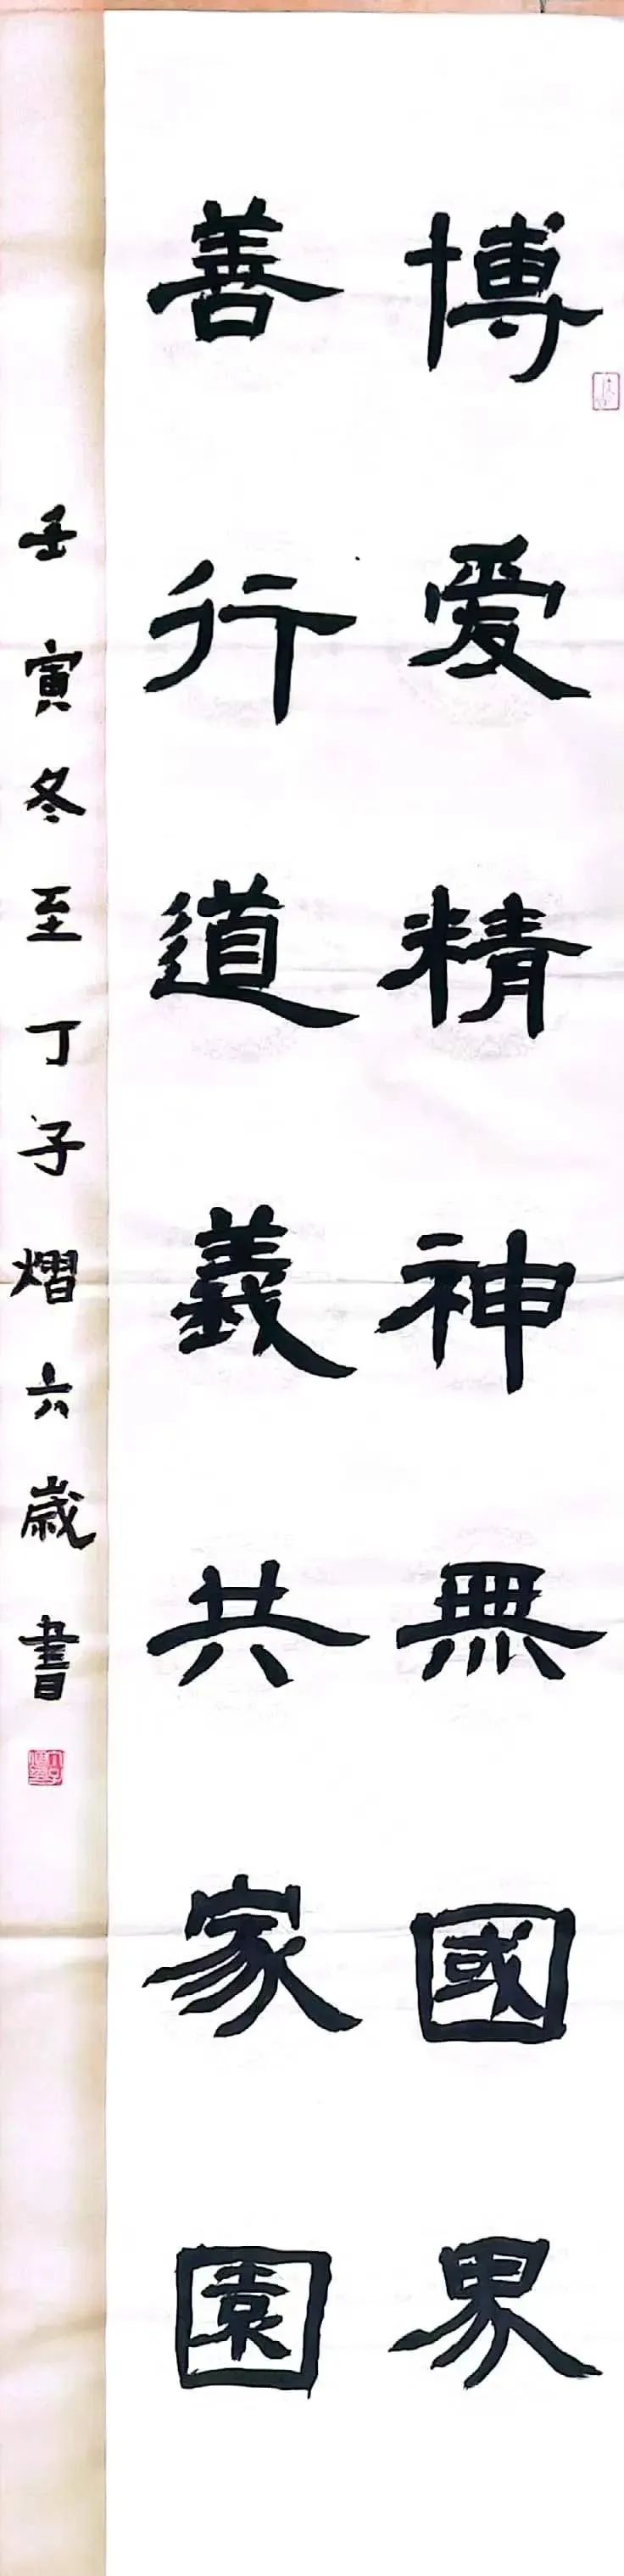 博爱精神無國界
善行道義共家園
壬寅冬至丁子熠六歲書